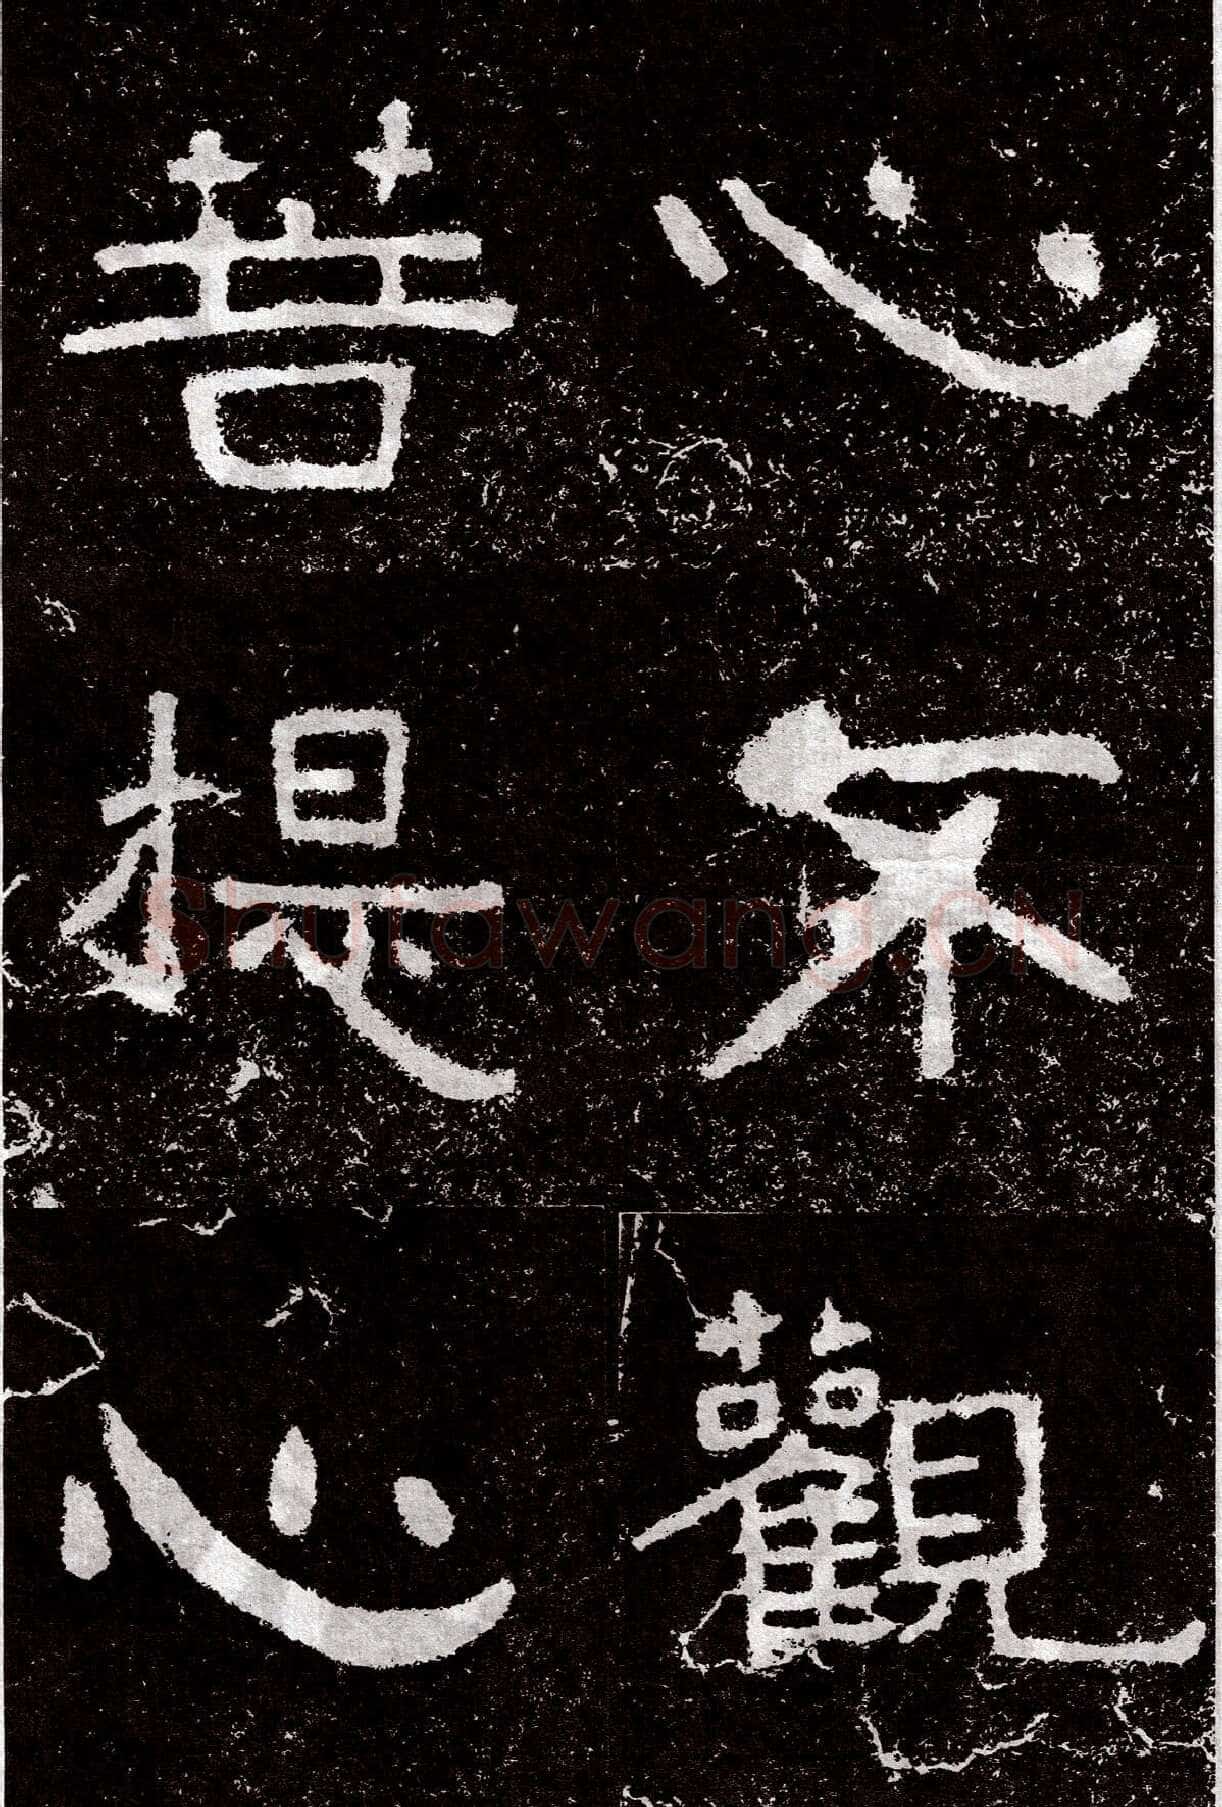 心不觀
菩提心
Shufawang.CN